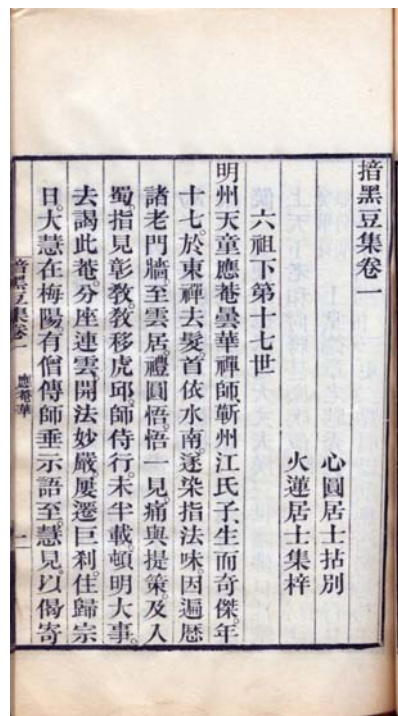 揞黑豆集卷一
心圓居士拈別
火蓮居士集梓
六祖下第十七世
明州天童應菴曇華禪師、蘄州江氏子、生而奇傑。年
十七。於東禪去髮。首依水南。遂染指法味。因遍歷
諸老門牆至雲居。禮圓悟。悟一見。痛與提策。及入
蜀。指見彰教。教移虎邱。師侍行。未半載。頓明大事。
去謁此菴。分座連雲。開法妙嚴。屢遷巨刹。住歸宗
日。大慧在梅陽。有僧傳師垂示語至。慧見。以偈寄
揞黑豆集卷一
應菴華
一